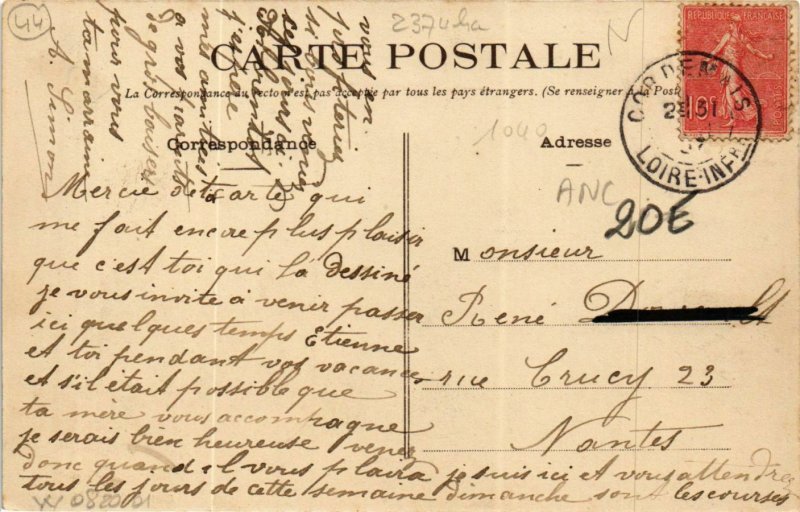 44
237 Wha
N
RÉPUBLIQUE FRANÇAISE
10
POSTES
CARTE POSTALE
La Correspondance au recto n'est pas acceptée par tous les pays étrangers. (Se renseigner à la Poste
CORDEMAIS
LOIRE-INFRE
1040
Correspondance
Adresse
ANC
20E
Mercie de ta carte qui
me fait encore plus plaisir
que c'est toi qui la dessiné
je vous invite à venir passer
ici quelques temps Etienne
et toi pendant vos vacances
et s'il était possible que
ta mère vous accompagne
je serais bien heureuse venez
donc quand il vous plaira je suis ici et vous attendrez
tous les jours de cette semaine dimanche sont les courses
vous en
profiterez
si bon vous
ces jours ci
j'espère
mes amitiés
à vos parents
se gros baisers
pour vous
ta marraine
A. Simon
Monsieur
René
rue Crucy 23
Nantes
W 082001